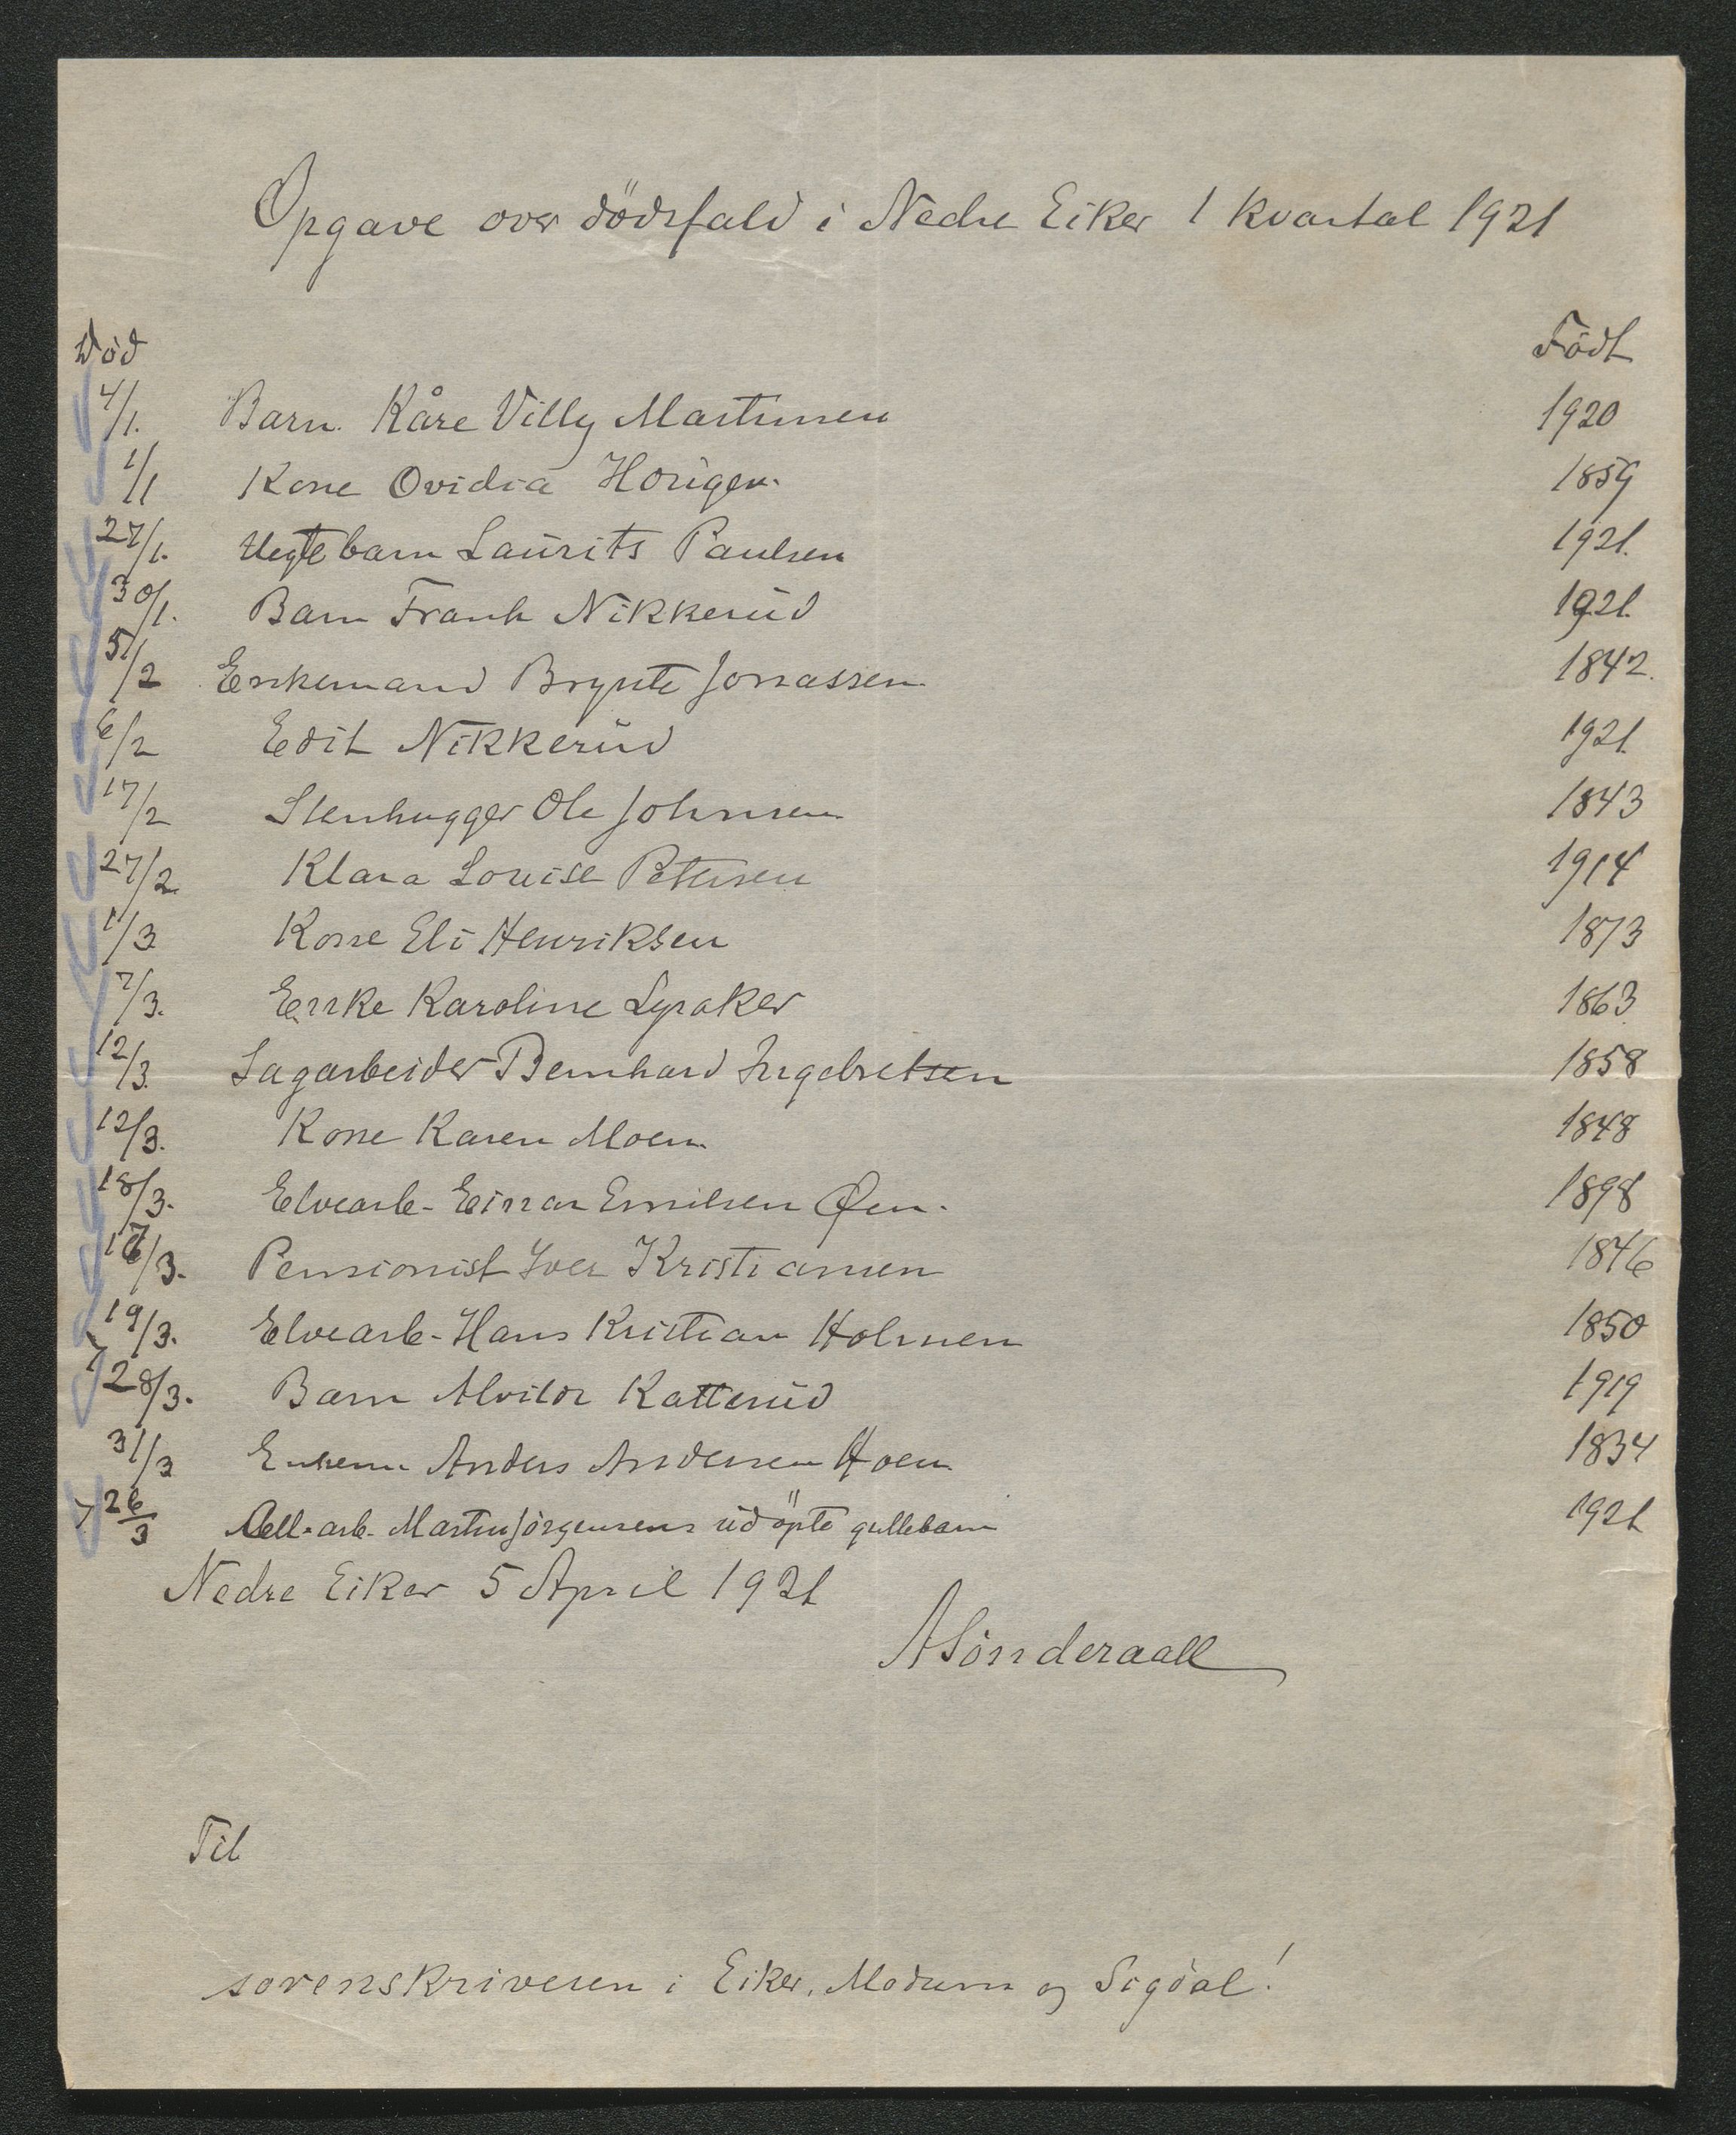 Opgave over dödsfald i Nedre Eiker 1 kvartal 1921
Död Födt
4/1. Barn. Kåre Villy Martinsen 1920
1/1 Kone Ovidia Horigen. 1859
27/1. Uegte barn Laurits Paulsen 1921.
30/1. Barn Frank Nikkerud 1921.
5/2 Enkemand Brynte Jonassen 1842.
6/2 Edit Nikkerud 1921.
17/2 Stenhugger Ole Johnsen 1843
27/2. Klara Louise Petersen 1914
1/3 Kone Eli Henriksen 1873
7/3. Enke Karoline Lyraker 1863
12/3. Sagarbeider Bernhard Ingebretsen 1858
12/3. Kone Karen Moen 1848
18/3. Elvearb. Einar Emilsen Øen. 1898
3. Pensionist Iver Kristiansen 1846
19/3. Elvearb. Hans Kristian Holmen 1850
28/3. Barn Alvilde Katterud 1919
31/3 Enkem. Anders Andersen Hoen 1834
26/3 Cell. arb. Martin Jörgensens udöpte guttebarn 1921
Nedre Eiker 5 April 1921
A Sönderaall
Til
sorenskriveren i Eiker, Modum og Sigdal!